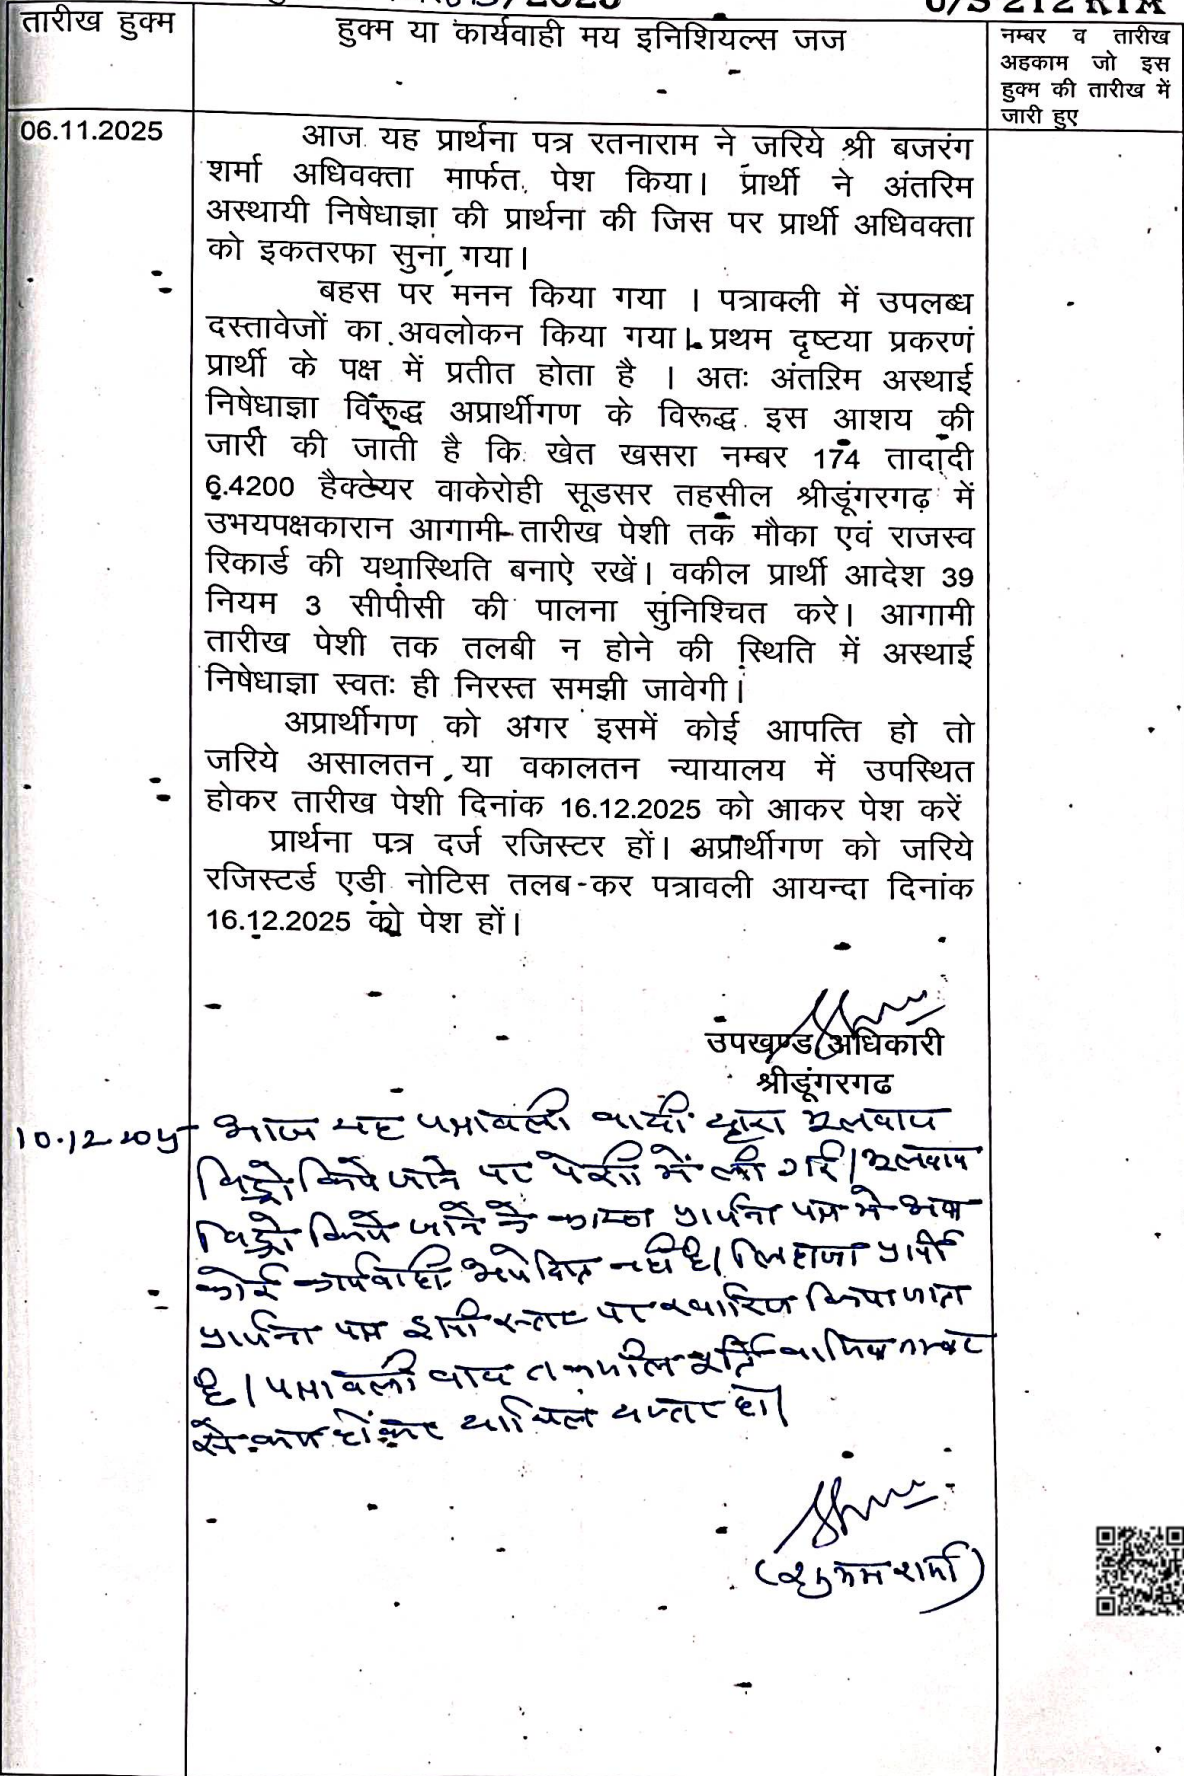 /2025 U/S 212 RTA
तारीख हुक्म
हुक्म या कार्यवाही मय इनिशियल्स जज
नम्बर व तारीख
अहकाम जो इस
हुक्म की तारीख में
जारी हुए
06.11.2025
आज यह प्रार्थना पत्र रतनाराम ने जरिये श्री बजरंग
शर्मा अधिवक्ता मार्फत पेश किया। प्रार्थी ने अंतरिम
अस्थायी निषेधाज्ञा की प्रार्थना की जिस पर प्रार्थी अधिवक्ता
को इकतरफा सुना गया।
बहस पर मनन किया गया । पत्रावली में उपलब्ध
दस्तावेजों का अवलोकन किया गया। प्रथम दृष्टया प्रकरण
प्रार्थी के पक्ष में प्रतीत होता है । अतः अंतरिम अस्थाई
निषेधाज्ञा विरूद्ध अप्रार्थीगण के विरूद्ध इस आशय की
जारी की जाती है कि खेत खसरा नम्बर 174 तादादी
6.4200 हैक्टेयर वाकेरोही सूडसर तहसील श्रीडूंगरगढ़ में
उभयपक्षकारान आगामी तारीख पेशी तक मौका एवं राजस्व
रिकार्ड की यथास्थिति बनाऐ रखें। वकील प्रार्थी आदेश 39
नियम 3 सीपीसी की पालना सुनिश्चित करे। आगामी
तारीख पेशी तक तलबी न होने की स्थिति में अस्थाई
निषेधाज्ञा स्वतः ही निरस्त समझी जावेगी।
अप्रार्थीगण को अगर इसमें कोई आपत्ति हो तो
जरिये असालतन या वकालतन न्यायालय में उपस्थित
होकर तारीख पेशी दिनांक 16.12.2025 को आकर पेश करें
प्रार्थना पत्र दर्ज रजिस्टर हों। अप्रार्थीगण को जरिये
रजिस्टर्ड एडी नोटिस तलब कर पत्रावली आयन्दा दिनांक
16.12.2025 को पेश हों।
उपखण्ड अधिकारी
श्रीडूंगरगढ
10.12.2025 आज यह पत्रावली वादी द्वारा मूलवाद
विड्रो किये जाने पर पेशी में ली गई। मूलवाद
विड्रो किये जाने के कारण प्रार्थना पत्र में अब
कोई कार्यवाही अपेक्षित नहीं है। लिहाजा प्रार्थी
प्रार्थना पत्र इसी स्तर पर खारिज किया जाता
है। पत्रावली बाद तकमील पूर्ति नम्बर
से कम होकर दाखिल दफ्तर हो।
शर्मा)